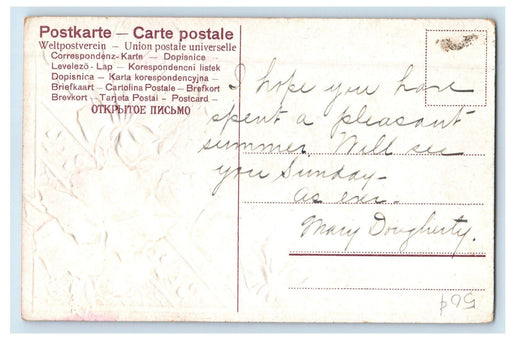 Postkarte – Carte postale
Weltpostverein – Union postale universelle
Correspondenz-Karte – Dopisnice
Levelezö-Lap – Korespondencni listek
Dopisnica – Karta korespondencyjna –
Briefkaart – Cartolina Postale – Brefkort
Brevkort – Tarjeta Postal – Postcard –
ОТКРЫТОЕ ПИСЬМО
I hope you have
spent a pleasant
summer. Will see
you Sunday-
as ever.
Mary Dougherty.
50¢